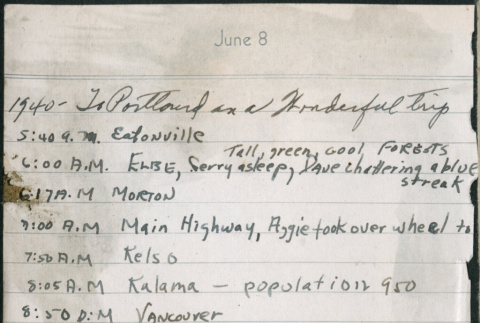 June 8
1940 - To Portland on a Wonderful trip
5:40 A.M. Eatonville
Tall, green, cool FORESTS
6:00 A.M. ELBE, Gerry asleep, Dave chattering a blue
streak
6:17 A.M MORTON
7:00 A.M Main Highway, Aggie took over wheel to
7:50 A.M Kelso
8:05 A.M Kalama — population 950
8:50 A.M VANCOUVER